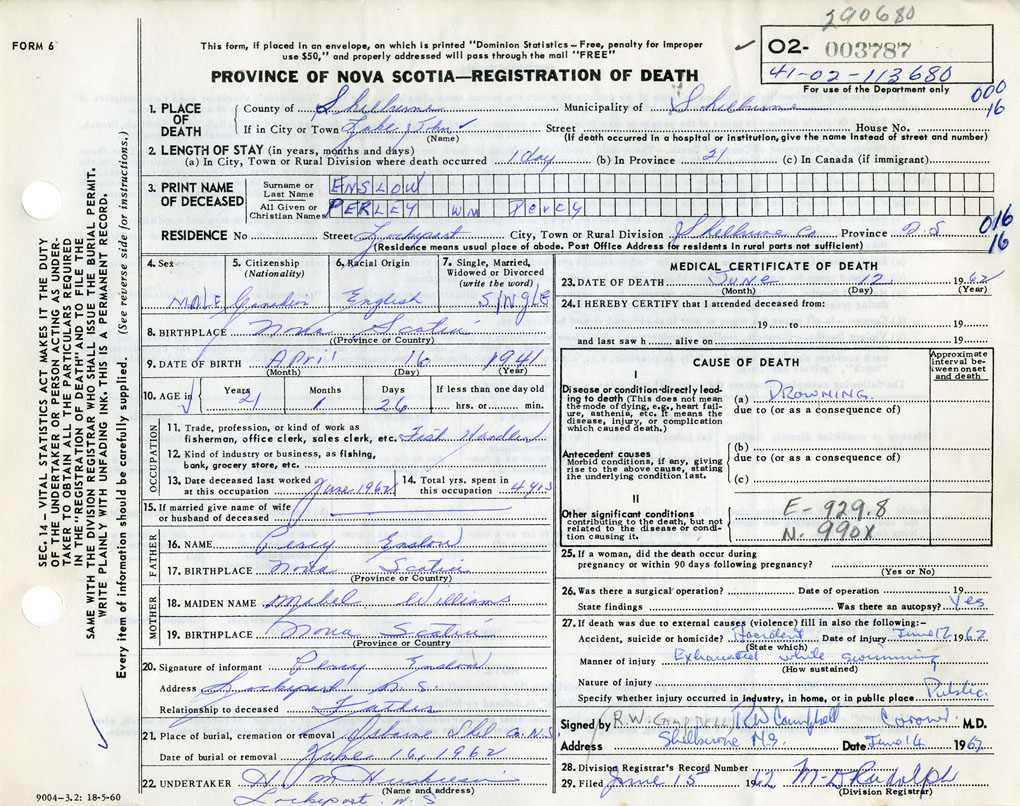 290680
FORM 6
This form, if placed in an envelope, on which is printed "Dominion Statistics – Free, penalty for improper
use $50," and properly addressed will pass through the mail "FREE"
✓ 02- 003787
41-02-113680
For use of the Department only
PROVINCE OF NOVA SCOTIA—REGISTRATION OF DEATH
000
16
1. PLACE OF DEATH County of Shelburne Municipality of Shelburne
If in City or Town Lake John ✓ (Name) Street House No.
(If death occurred in a hospital or institution, give the name instead of street and number)
2. LENGTH OF STAY (in years, months and days)
(a) In City, Town or Rural Division where death occurred 1 day (b) In Province 21 (c) In Canada (if immigrant)
3. PRINT NAME OF DECEASED Surname or Last Name ENSLOW
All Given or Christian Names PERLEY Wm Percy
RESIDENCE No Street Lockeport City, Town or Rural Division Shelburne Co. Province N.S
(Residence means usual place of abode. Post Office Address for residents in rural parts not sufficient)
016
16
4. Sex MALE
5. Citizenship (Nationality) Canadian
6. Racial Origin English
7. Single, Married, Widowed or Divorced (write the word) SINGLE
8. BIRTHPLACE Nova Scotia
(Province or Country)
9. DATE OF BIRTH April 16 1941
(Month) (Day) (Year)
10. AGE in Years 21 Months 1 Days 26 If less than one day old hrs. or min.
OCCUPATION
11. Trade, profession, or kind of work as
fisherman, office clerk, sales clerk, etc. Fish Handler
12. Kind of industry or business, as fishing,
bank, grocery store, etc.
13. Date deceased last worked at this occupation June 1962 14. Total yrs. spent in this occupation 4 yrs
15. If married give name of wife
or husband of deceased
FATHER
16. NAME Percy Enslow
17. BIRTHPLACE Nova Scotia
(Province or Country)
MOTHER
18. MAIDEN NAME Mabel Williams
19. BIRTHPLACE Nova Scotia
(Province or Country)
20. Signature of informant Percy Enslow
Address Lockeport N.S.
Relationship to deceased Father
21. Place of burial, cremation or removal Osborne Shel Co. N.S.
Date of burial or removal June 16, 1962
22. UNDERTAKER H. M Huskilson
(Name and address)
Lockeport N.S
9004–3.2: 18-5-60
SEC. 14 — VITAL STATISTICS ACT MAKES IT THE DUTY
OF THE UNDERTAKER OR PERSON ACTING AS UNDER-
TAKER TO OBTAIN ALL THE PARTICULARS REQUIRED
IN THE "REGISTRATION OF DEATH" AND TO FILE THE
SAME WITH THE DIVISION REGISTRAR WHO SHALL ISSUE THE BURIAL PERMIT.
WRITE PLAINLY WITH UNFADING INK. THIS IS A PERMANENT RECORD.
Every item of information should be carefully supplied. (See reverse side for instructions.)
MEDICAL CERTIFICATE OF DEATH
23. DATE OF DEATH June 12 1962
(Month) (Day) (Year)
24. I HEREBY CERTIFY that I attended deceased from:
19 to 19
and last saw h alive on 19
CAUSE OF DEATH
Approximate interval between onset and death
I
Disease or condition directly lead-
ing to death (This does not mean
the mode of dying, e.g., heart fail-
ure, asthenia, etc. It means the
disease, injury, or complication
which caused death.)
(a) DROWNING.
due to (or as a consequence of)
Antecedent causes
Morbid conditions, if any, giving
rise to the above cause, stating
the underlying condition last.
(b)
due to (or as a consequence of)
(c)
II
Other significant conditions
contributing to the death, but not
related to the disease or condi-
tion causing it.
E-929.8
N-990X
25. If a woman, did the death occur during
pregnancy or within 90 days following pregnancy?
(Yes or No)
26. Was there a surgical operation? Date of operation 19
State findings Was there an autopsy? Yes
27. If death was due to external causes (violence) fill in also the following:–
Accident, suicide or homicide? Accident Date of injury June 12 1962
(State which)
Manner of injury Exhausted while swimming
(How sustained)
Nature of injury
Specify whether injury occurred in Industry, in home, or in public place Public.
Signed by R.W. Campbell R W Campbell Coroner M.D.
Address Shelburne N.S. Date June 14 1962
28. Division Registrar's Record Number
29. Filed June 15 1962 M-D Rudolph
(Division Registrar)